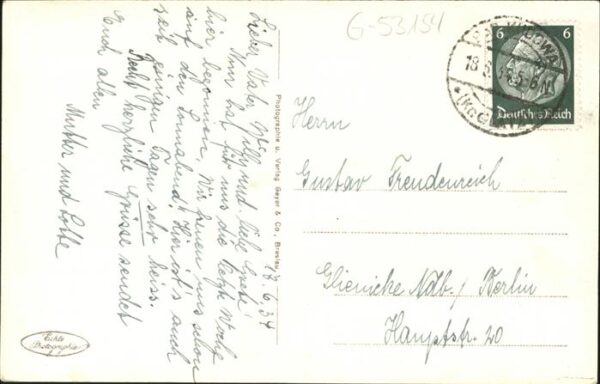 G-53154
18.6.34
Lieber Vater, Willi und liebe Gisela!
Nun hat für uns die letzte Woche
hier begonnen. Wir freuen uns schon
auf den Sonnabend! Hier ist's auch
seit einigen Tagen sehr heiss.
Recht herzliche Grüsse sendet
Euch allen
Mutter und Lotte
Photographie u. Verlag Geyer & Co., Breslau
Echte
Photographie
BAD KUDOWA
18.6.34
6 6
Deutsches Reich
Herrn
Gustav Freudenreich
Glienicke Ndb./Berlin
Hauptstr. 20